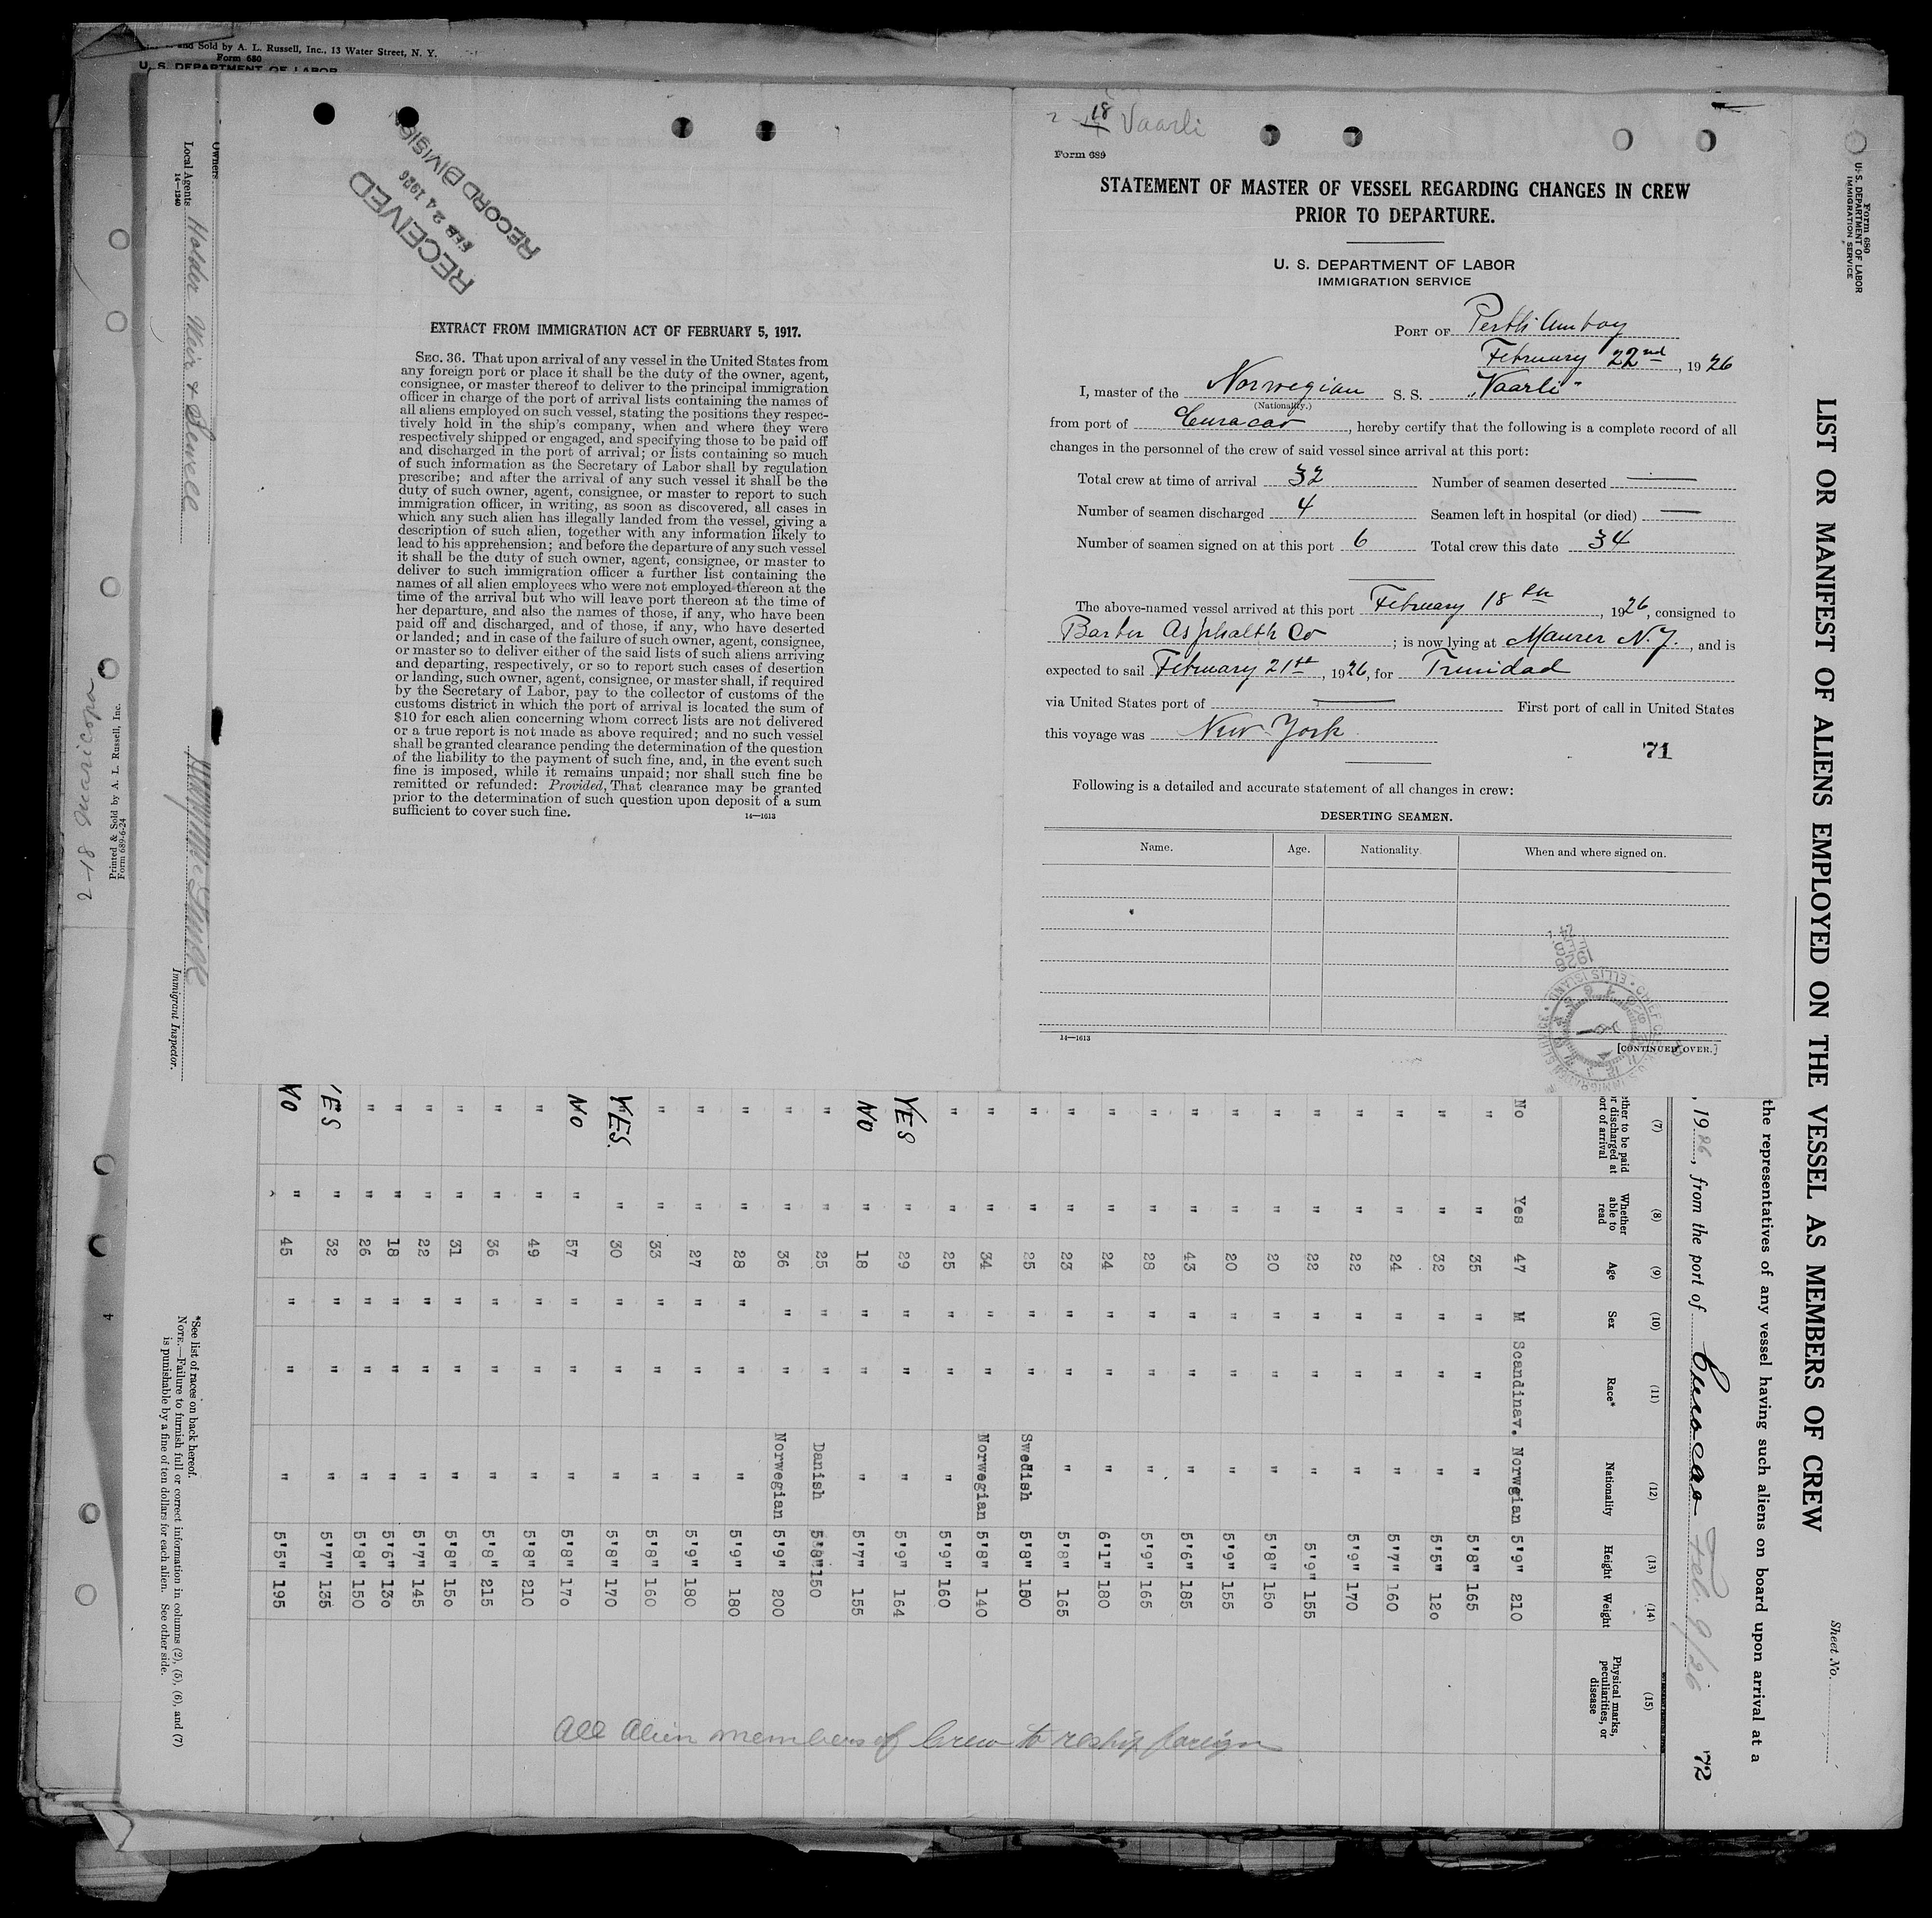 and Sold by A. L. Russell, Inc., 13 Water Street, N. Y.
Form 680
U. S. DEPARTMENT OF LABOR
Owners
Local Agents Holder Weir & Sewell
14—1240
Immigrant Inspector.
2-18 Maricopa
Printed & Sold by A. L. Russell, Inc.
Form 689-6-24
4
RECEIVED
FEB 24 1926
RECORD DIVISION
EXTRACT FROM IMMIGRATION ACT OF FEBRUARY 5, 1917.
SEC. 36. That upon arrival of any vessel in the United States from
any foreign port or place it shall be the duty of the owner, agent,
consignee, or master thereof to deliver to the principal immigration
officer in charge of the port of arrival lists containing the names of
all aliens employed on such vessel, stating the positions they respec-
tively hold in the ship's company, when and where they were
respectively shipped or engaged, and specifying those to be paid off
and discharged in the port of arrival; or lists containing so much
of such information as the Secretary of Labor shall by regulation
prescribe; and after the arrival of any such vessel it shall be the
duty of such owner, agent, consignee, or master to report to such
immigration officer, in writing, as soon as discovered, all cases in
which any such alien has illegally landed from the vessel, giving a
description of such alien, together with any information likely to
lead to his apprehension; and before the departure of any such vessel
it shall be the duty of such owner, agent, consignee, or master to
deliver to such immigration officer a further list containing the
names of all alien employees who were not employed thereon at the
time of the arrival but who will leave port thereon at the time of
her departure, and also the names of those, if any, who have been
paid off and discharged, and of those, if any, who have deserted
or landed; and in case of the failure of such owner, agent, consignee,
or master so to deliver either of the said lists of such aliens arriving
and departing, respectively, or so to report such cases of desertion
or landing, such owner, agent, consignee, or master shall, if required
by the Secretary of Labor, pay to the collector of customs of the
customs district in which the port of arrival is located the sum of
$10 for each alien concerning whom correct lists are not delivered
or a true report is not made as above required; and no such vessel
shall be granted clearance pending the determination of the question
of the liability to the payment of such fine, and, in the event such
fine is imposed, while it remains unpaid; nor shall such fine be
remitted or refunded: Provided, That clearance may be granted
prior to the determination of such question upon deposit of a sum
sufficient to cover such fine.
14—1613
18 Vaarli
Form 689
STATEMENT OF MASTER OF VESSEL REGARDING CHANGES IN CREW
PRIOR TO DEPARTURE.
U. S. DEPARTMENT OF LABOR
IMMIGRATION SERVICE
PORT OF Perth Amboy
February 22nd, 1926
I, master of the Norwegian S. S. "Vaarli"
(Nationality.)
from port of Curacao, hereby certify that the following is a complete record of all
changes in the personnel of the crew of said vessel since arrival at this port:
Total crew at time of arrival 32 Number of seamen deserted —
Number of seamen discharged 4 Seamen left in hospital (or died) —
Number of seamen signed on at this port 6 Total crew this date 34
The above-named vessel arrived at this port February 18th, 1926, consigned to
Barber Asphalth Co; is now lying at Maurer N.J., and is
expected to sail February 21st, 1926, for Trinidad
via United States port of — First port of call in United States
this voyage was New York
71
Following is a detailed and accurate statement of all changes in crew:
DESERTING SEAMEN.
Name. Age. Nationality. When and where signed on.
14—1613
[CONTINUED OVER.]
Form 680
U. S. DEPARTMENT OF LABOR
IMMIGRATION SERVICE
LIST OR MANIFEST OF ALIENS EMPLOYED ON THE VESSEL AS MEMBERS OF CREW
Sheet No.
the representatives of any vessel having such aliens on board upon arrival at a
, 1926, from the port of Curacao Feb. 9/26
72
(7) (8) (9) (10) (11) (12) (13) (14) (15)
ether to be paid or discharged at ort of arrival
Whether able to read
Age
Sex
Race*
Nationality
Height
Weight
Physical marks, peculiarities, or disease
No Yes 47 M Scandinav. Norwegian 5'9" 210
" " 35 " " " 5'8" 165
" " 32 " " " 5'5" 120
" " 24 " " " 5'7" 160
" " 22 " " " 5'9" 170
" " 22 " " " 5'9" 155
" " 20 " " " 5'8" 150
" " 20 " " " 5'9" 155
" " 43 " " " 5'6" 185
" " 28 " " " 5'9" 165
" " 24 " " " 6'1" 180
" " 23 " " " 5'8" 165
" " 25 " " Swedish 5'8" 150
" " 34 " " Norwegian 5'8" 140
" " 25 " " " 5'9" 160
YES " 29 " " " 5'9" 164
NO " 18 " " " 5'7" 155
" " 25 " " Danish 5'8" 150
" " 36 " " Norwegian 5'9" 200
" " 28 " " " 5'9" 180
" " 27 " " " 5'9" 180
" " 33 " " " 5'8" 160
YES. " 30 " " " 5'8" 170
NO " 57 " " " 5'8" 170
" " 49 " " " 5'8" 210
" " 36 " " " 5'8" 215
" " 31 " " " 5'8" 150
" " 22 " " " 5'7" 145
" " 18 " " " 5'6" 130
" " 26 " " " 5'8" 150
YES " 32 " " " 5'7" 135
NO " 45 " " " 5'5" 195
All Alien members of Crew to reship foreign
*See list of races on back hereof.
NOTE.—Failure to furnish full or correct information in columns (2), (5), (6), and (7)
is punishable by a fine of ten dollars for each alien. See other side.